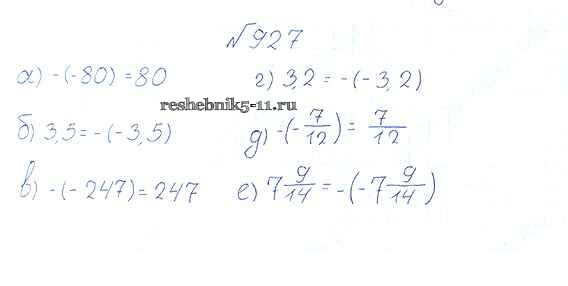 №927
а) -(-80) = 80
г) 3,2 = -(-3,2)
reshebnik5-11.ru
б) 3,5 = -(-3,5)
д) -(-7/12) = 7/12
в) -(-247) = 247
е) 7 9/14 = -(-7 9/14)